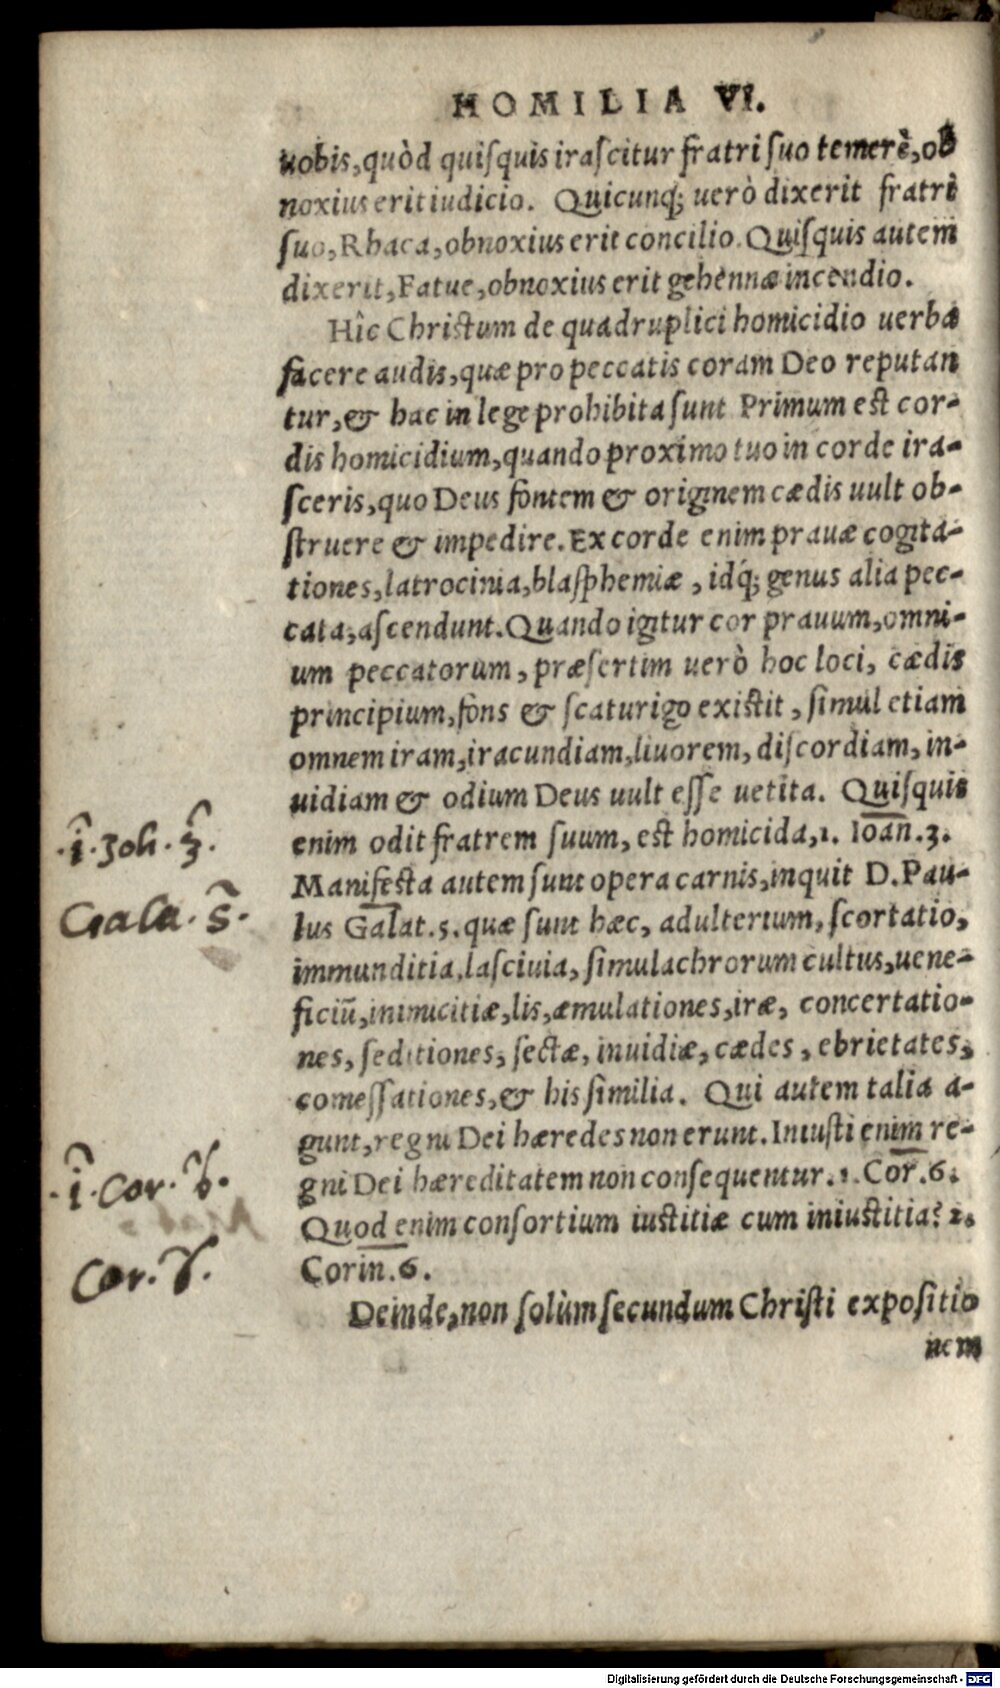 HOMILIA VI.
uobis, quòd quisquis irascitur fratri suo temerè, ob
noxius erit iudicio. Quicunq; uerò dixerit fratri
suo, Rhaca, obnoxius erit concilio. Quisquis autem
dixerit, Fatue, obnoxius erit gehennæ incendio.
Hîc Christum de quadruplici homicidio uerba
facere audis, quæ pro peccatis coram Deo reputan
tur, & hac in lege prohibita sunt Primum est cor-
dis homicidium, quando proximo tuo in corde ira-
sceris, quo Deus fontem & originem cædis uult ob-
struere & impedire. Ex corde enim prauæ cogita-
tiones, latrocinia, blasphemiæ, idq́; genus alia pec-
cata, ascendunt. Quando igitur cor prauum, omni-
um peccatorum, præsertim uerò hoc loci, cædis
principium, fons & scaturigo existit, simul etiam
omnem iram, iracundiam, liuorem, discordiam, in-
uidiam & odium Deus uult esse uetita. Quisquis
enim odit fratrem suum, est homicida, 1. Ioan. 3.
·1· Joh. 3.
Manifesta autem sunt opera carnis, inquit D. Pau-
Gala. 5.
lus Galat. 5. quæ sunt hæc, adulterium, scortatio,
immunditia, lasciuia, simulachrorum cultus, uene-
ficiũ, inimicitiæ, lis, æmulationes, iræ, concertatio-
nes, seditiones, sectæ, inuidiæ, cædes, ebrietates,
comessationes, & his similia. Qui autem talia a-
gunt, regni Dei hæredes non erunt. Iniusti enim re-
·1· Cor. 6.
gni Dei hæreditatem non consequentur. 1. Cor. 6.
Quod enim consortium iustitiæ cum iniustitia? 2.
Cor. 6.
Corin. 6.
Deinde, non solùm secundum Christi expositio
nem
Digitalisierung gefördert durch die Deutsche Forschungsgemeinschaft - DFG